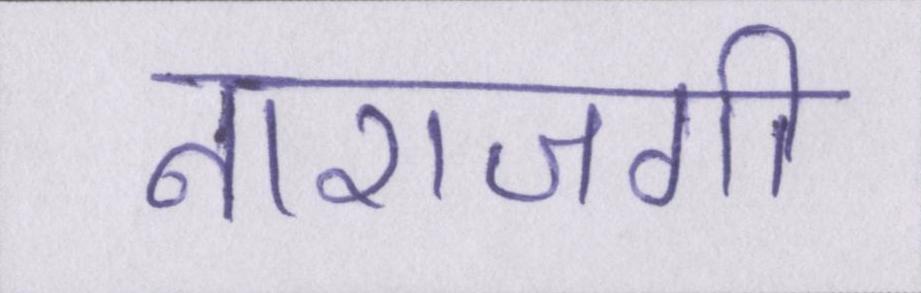 नाराजगी